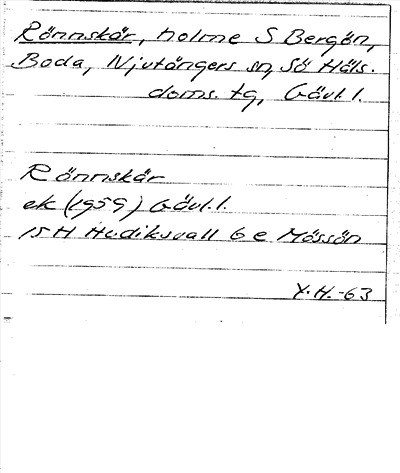 Rönnskär, holme S Bergön,
Boda, Njutångers sn, Sö Häls.
doms. tg, Gävl. l.
Rönnskär
ek (1959) Gävl. l.
15H Hudiksvall 6 e Mössön
Y. H. -63